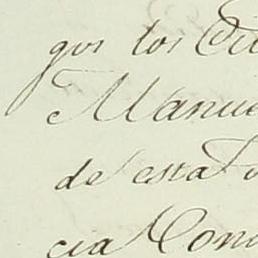 gos los
Manue
de esta
cia Con